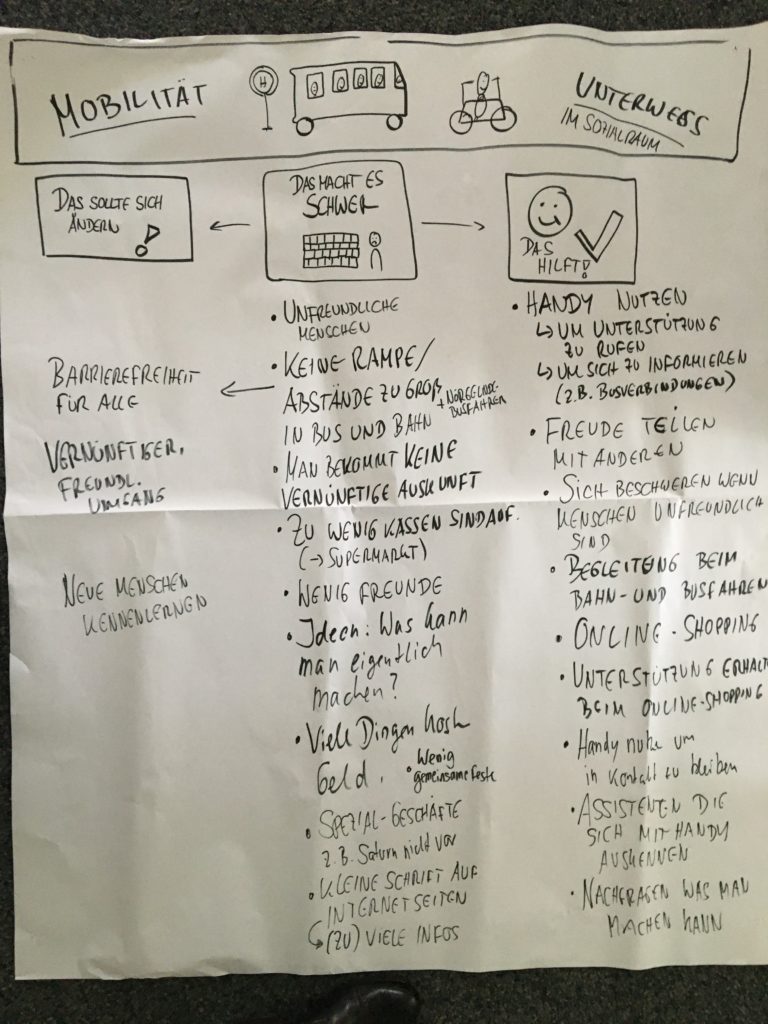 MOBILITÄT
H
UNTERWEGS
IM SOZIALRAUM
DAS SOLLTE SICH
ÄNDERN !
BARRIEREFREIHEIT
FÜR ALLE
VERNÜNFTIGER,
FREUNDL.
UMGANG
NEUE MENSCHEN
KENNENLERNEN
DAS MACHT ES
SCHWER
• UNFREUNDLICHE
MENSCHEN
• KEINE RAMPE/
ABSTÄNDE ZU GROß
+ NÖRGELNDE
BUSFAHRER
IN BUS UND BAHN
• MAN BEKOMMT KEINE
VERNÜNFTIGE AUSKUNFT
• ZU WENIG KASSEN SIND AUF.
(→ SUPERMARKT)
• WENIG FREUNDE
• Ideen: Was kann
man eigentlich
machen?
• Viele Dingen kosten
Geld.
• Wenig
gemeinsame Feste
• SPEZIAL-GESCHÄFTE
z.B. Saturn nicht vor
• KLEINE SCHRIFT AUF
INTERNETSEITEN
↳ (ZU) VIELE INFOS
DAS
HILFT!
• HANDY NUTZEN
↳ UM UNTERSTÜTZUNG
ZU RUFEN
↳ UM SICH ZU INFORMIEREN
(Z.B. BUSVERBINDUNGEN)
• FREUDE TEILEN
MIT ANDEREN
• SICH BESCHWEREN WENN
MENSCHEN UNFREUNDLICH
SIND
• BEGLEITUNG BEIM
BAHN- UND BUSFAHREN
• ONLINE-SHOPPING
• UNTERSTÜTZUNG ERHALT
BEIM ONLINE-SHOPPING
• Handy nutze um
in Kontakt zu bleiben
• ASSISTENTEN DIE
SICH MIT HANDY
AUSKENNEN
• NACHFRAGEN WAS MAN
MACHEN KANN